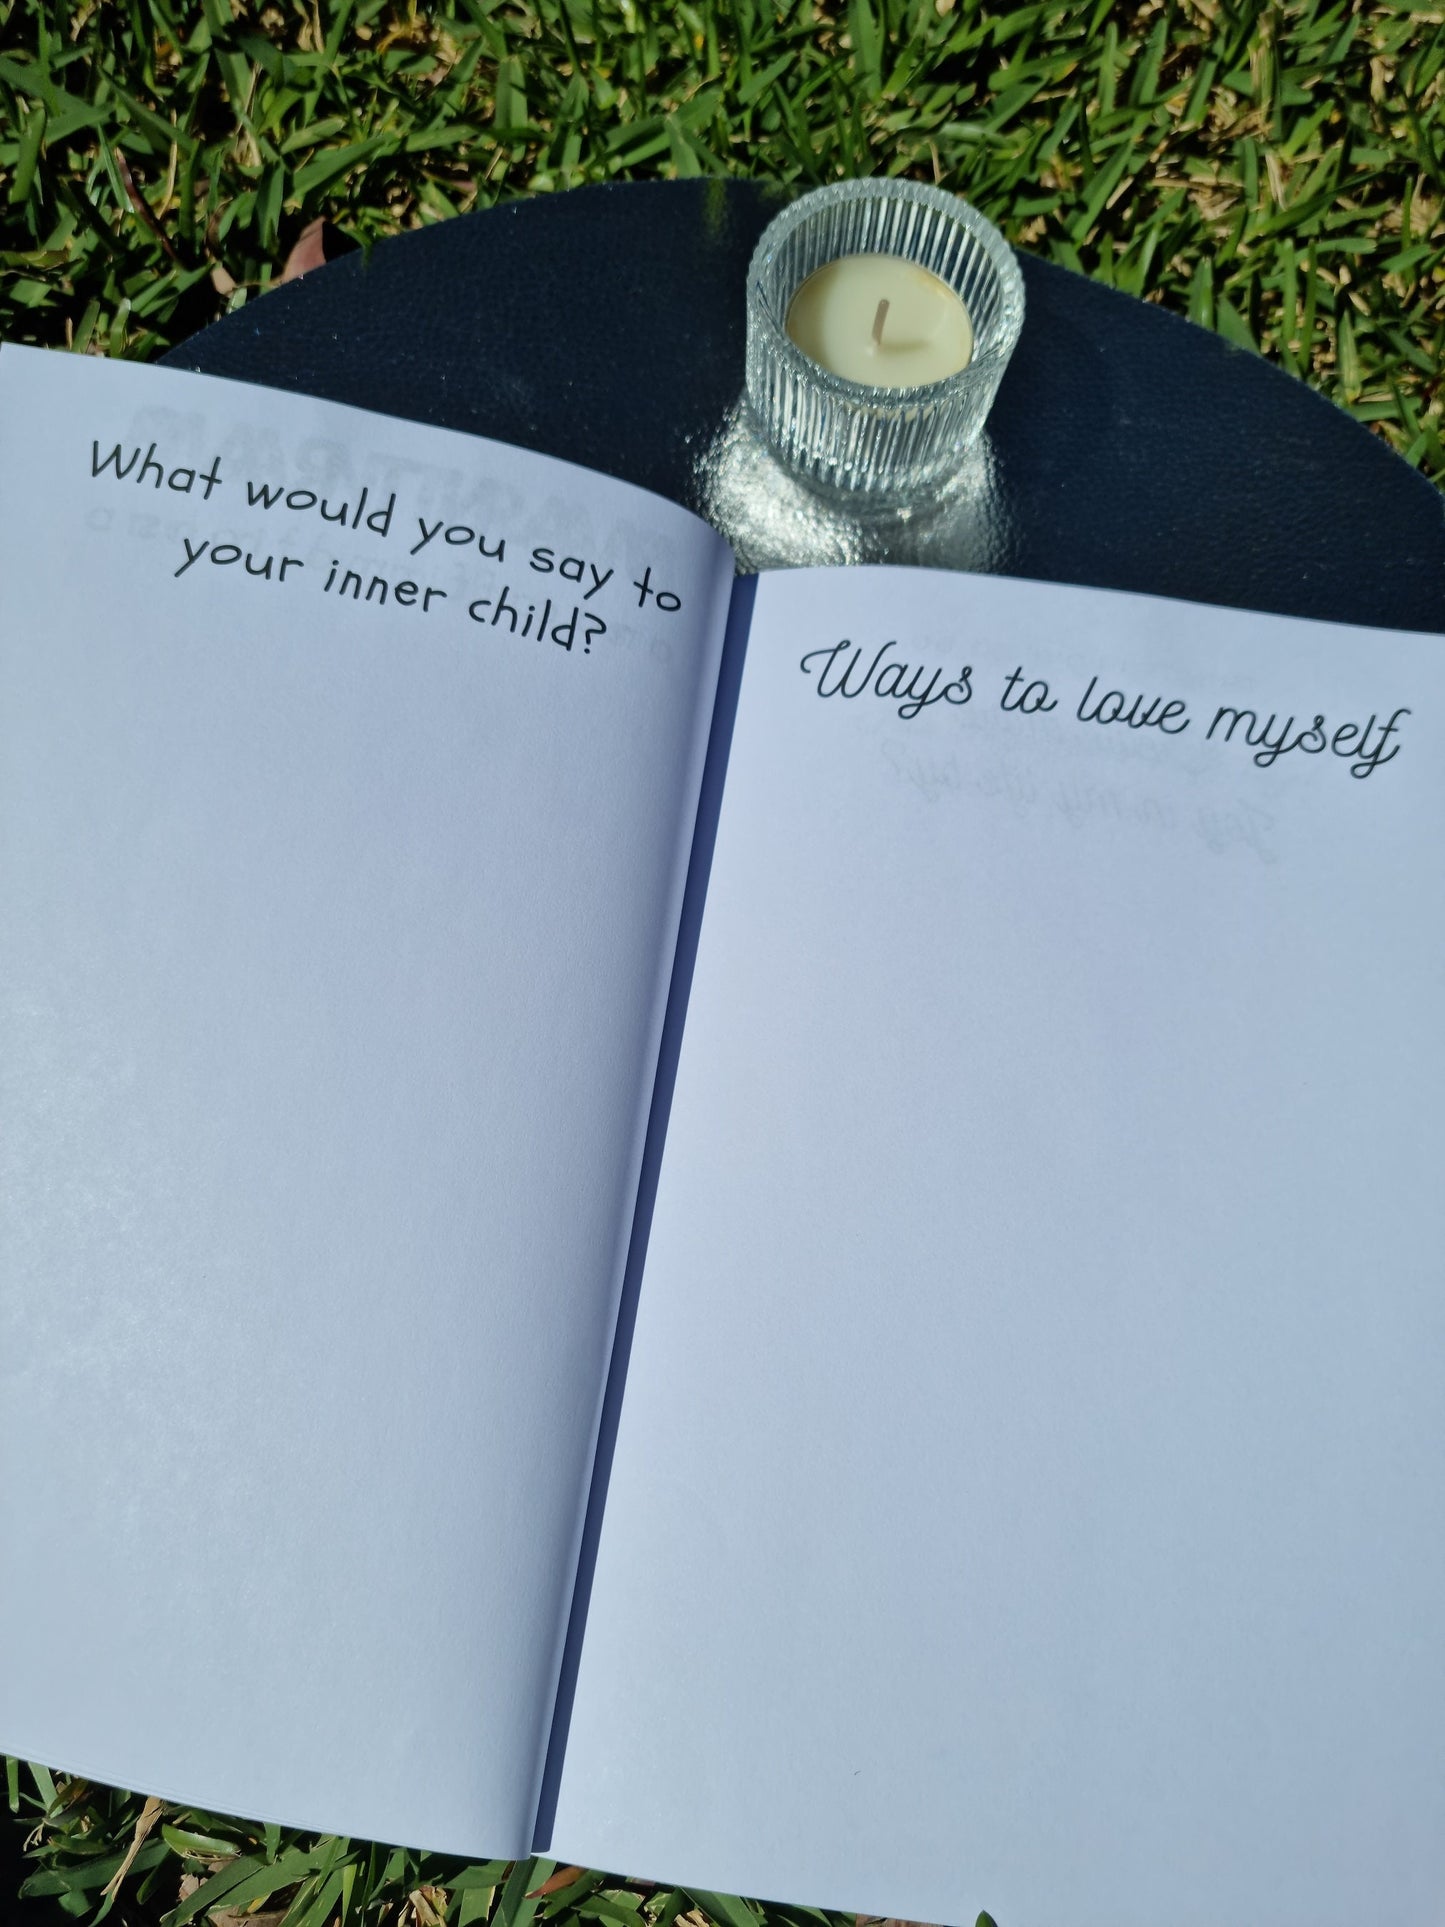 What would you say to
your inner child?
Ways to love myself